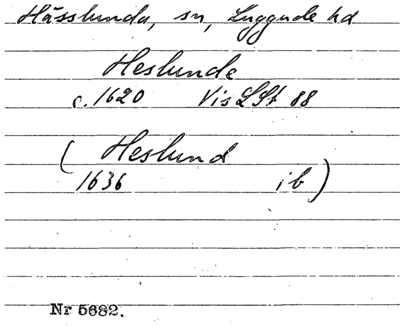 Hässlunda, sn, Luggude hd
Heslunde
c. 1620 Vis LSt 88
( Heslund
1636 ib )
Nr 5682.